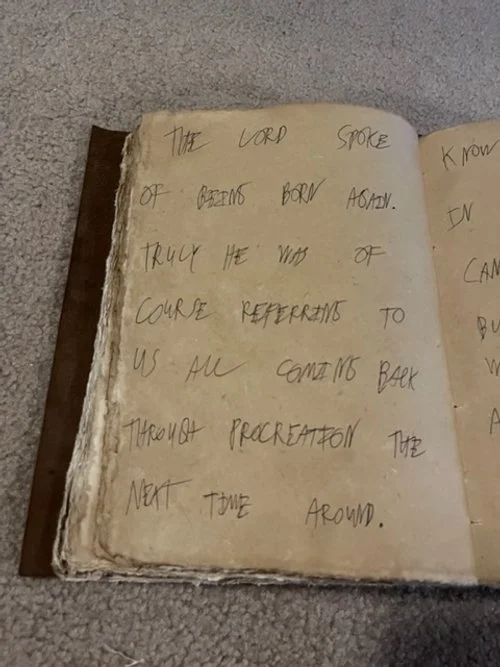 THE LORD SPOKE
OF BEING BORN AGAIN.
TRULY HE WAS OF
COURSE REFERRING TO
US ALL COMING BACK
THROUGH PROCREATION THE
NEXT TIME AROUND.
KNOW
IN
CAN
BU
W
A